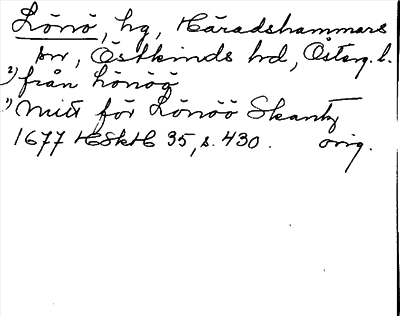 Lönö, hg, Häradshammars
sn, Östkinds hd, Österg. l.
2) från Lönöö
1) Mitt för Lönöö Skantz
1677 HSkH 35, s. 430. orig.